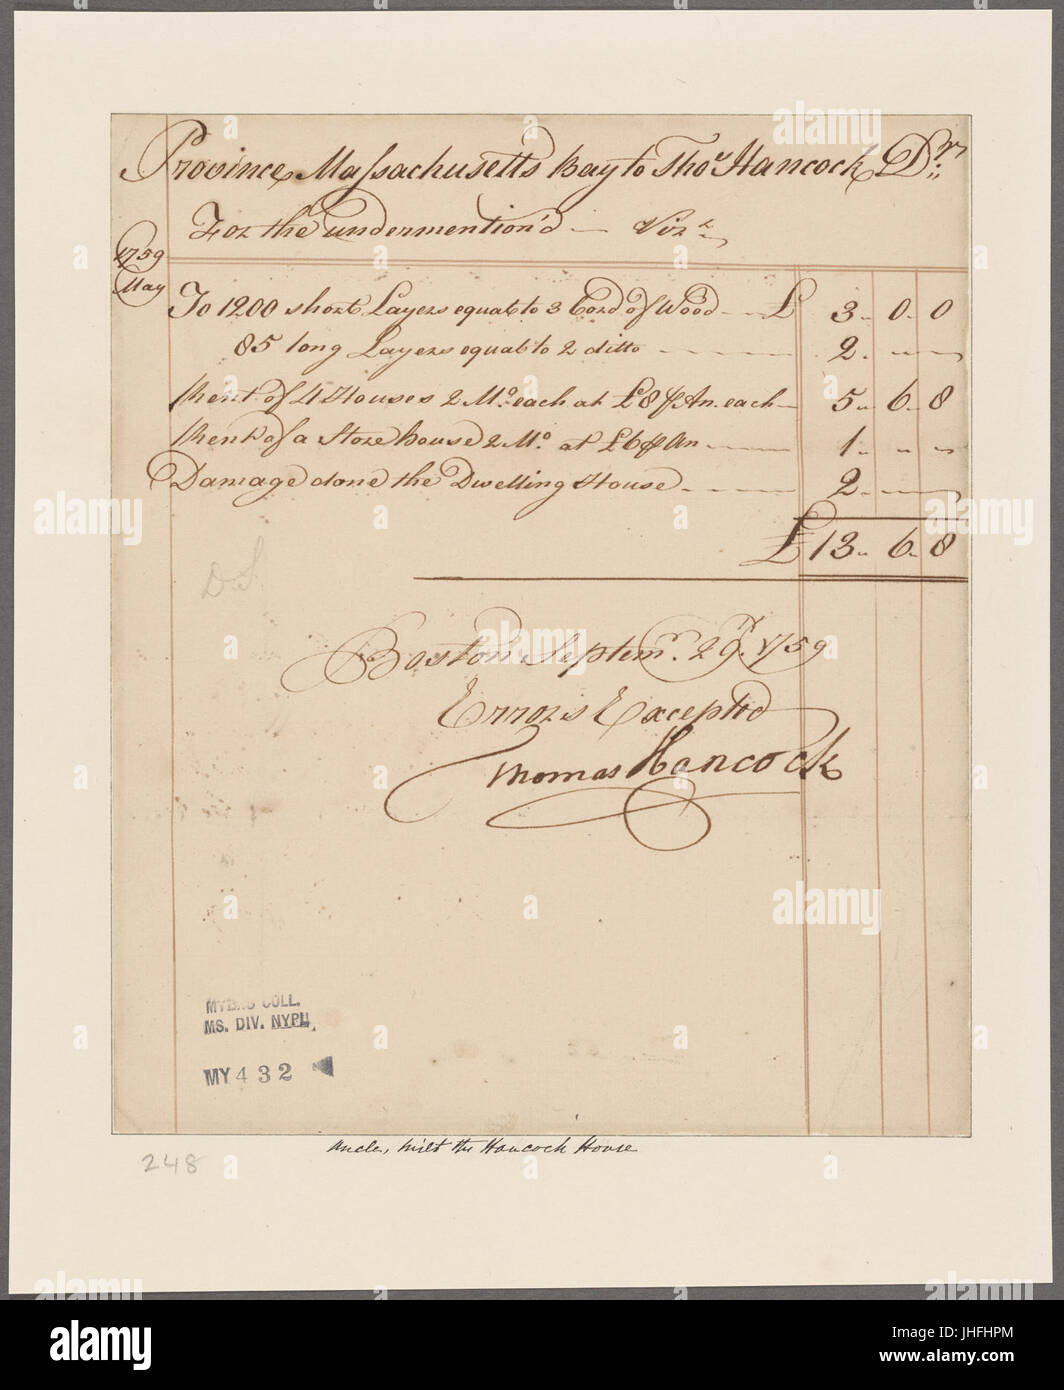 Province Massachusetts Bay to Thoˢ Hancock Dʳ
For the undermention'd Vizᵗ
1759
May
To 1200 short Layers equal to 3 Cord of Wood £ 3 . 0 . 0
85 long Layers equal to 2 ditto 2 . — —
Rent of 4 Houses 2 Mo. each at £8 ⅌ An. each 5 . 6 . 8
Rent of a Store house 2 Mo. at £6 ⅌ An 1 . — —
Damage done the Dwelling House 2 . — —
£ 13 . 6 . 8
D.S.
Boston Septemʳ. 29. 1759
Errors Excepted
Thomas Hancock
MYERS COLL.
MS. DIV. NYPL.
MY 432
Uncle, built the Hancock House
248
alamy
a
alamy stock photo
JHFHPM
www.alamy.com